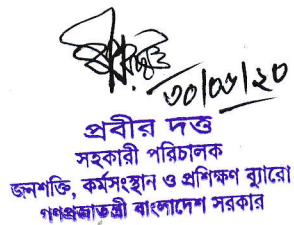 ৩০/০৬/২০
প্রবীর দত্ত
সহকারী পরিচালক
জনশক্তি, কর্মসংস্থান ও প্রশিক্ষণ ব্যুরো
গণপ্রজাতন্ত্রী বাংলাদেশ সরকার